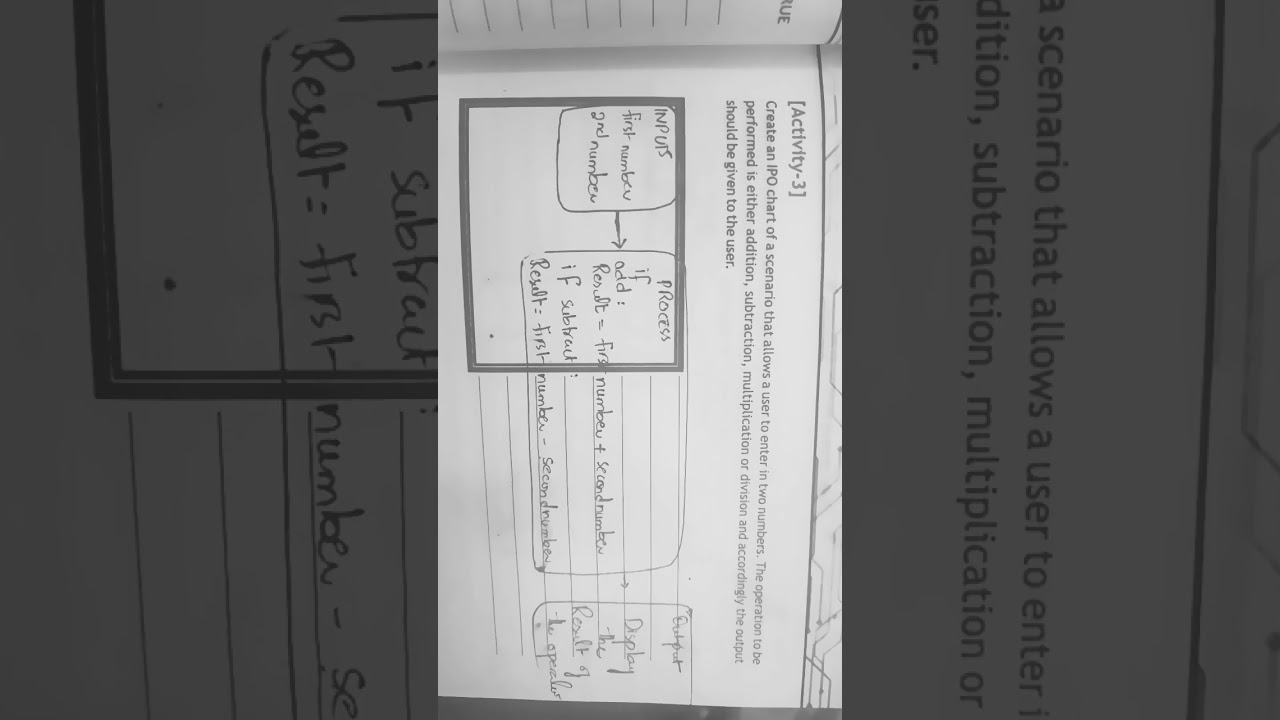 RUE
[Activity-3]
Create an IPO chart of a scenario that allows a user to enter in two numbers. The operation to be
performed is either addition, subtraction, multiplication or division and accordingly the output
should be given to the user.
INPUTS
first number
2nd number
PROCESS
if
add:
Result = first number + second number
if subtract:
Result = first number - second number
Output
Display
the
Result of
the operator
a scenario that allows a user to enter i
dition, subtraction, multiplication or
user.
if subtract:
Result = first number - se